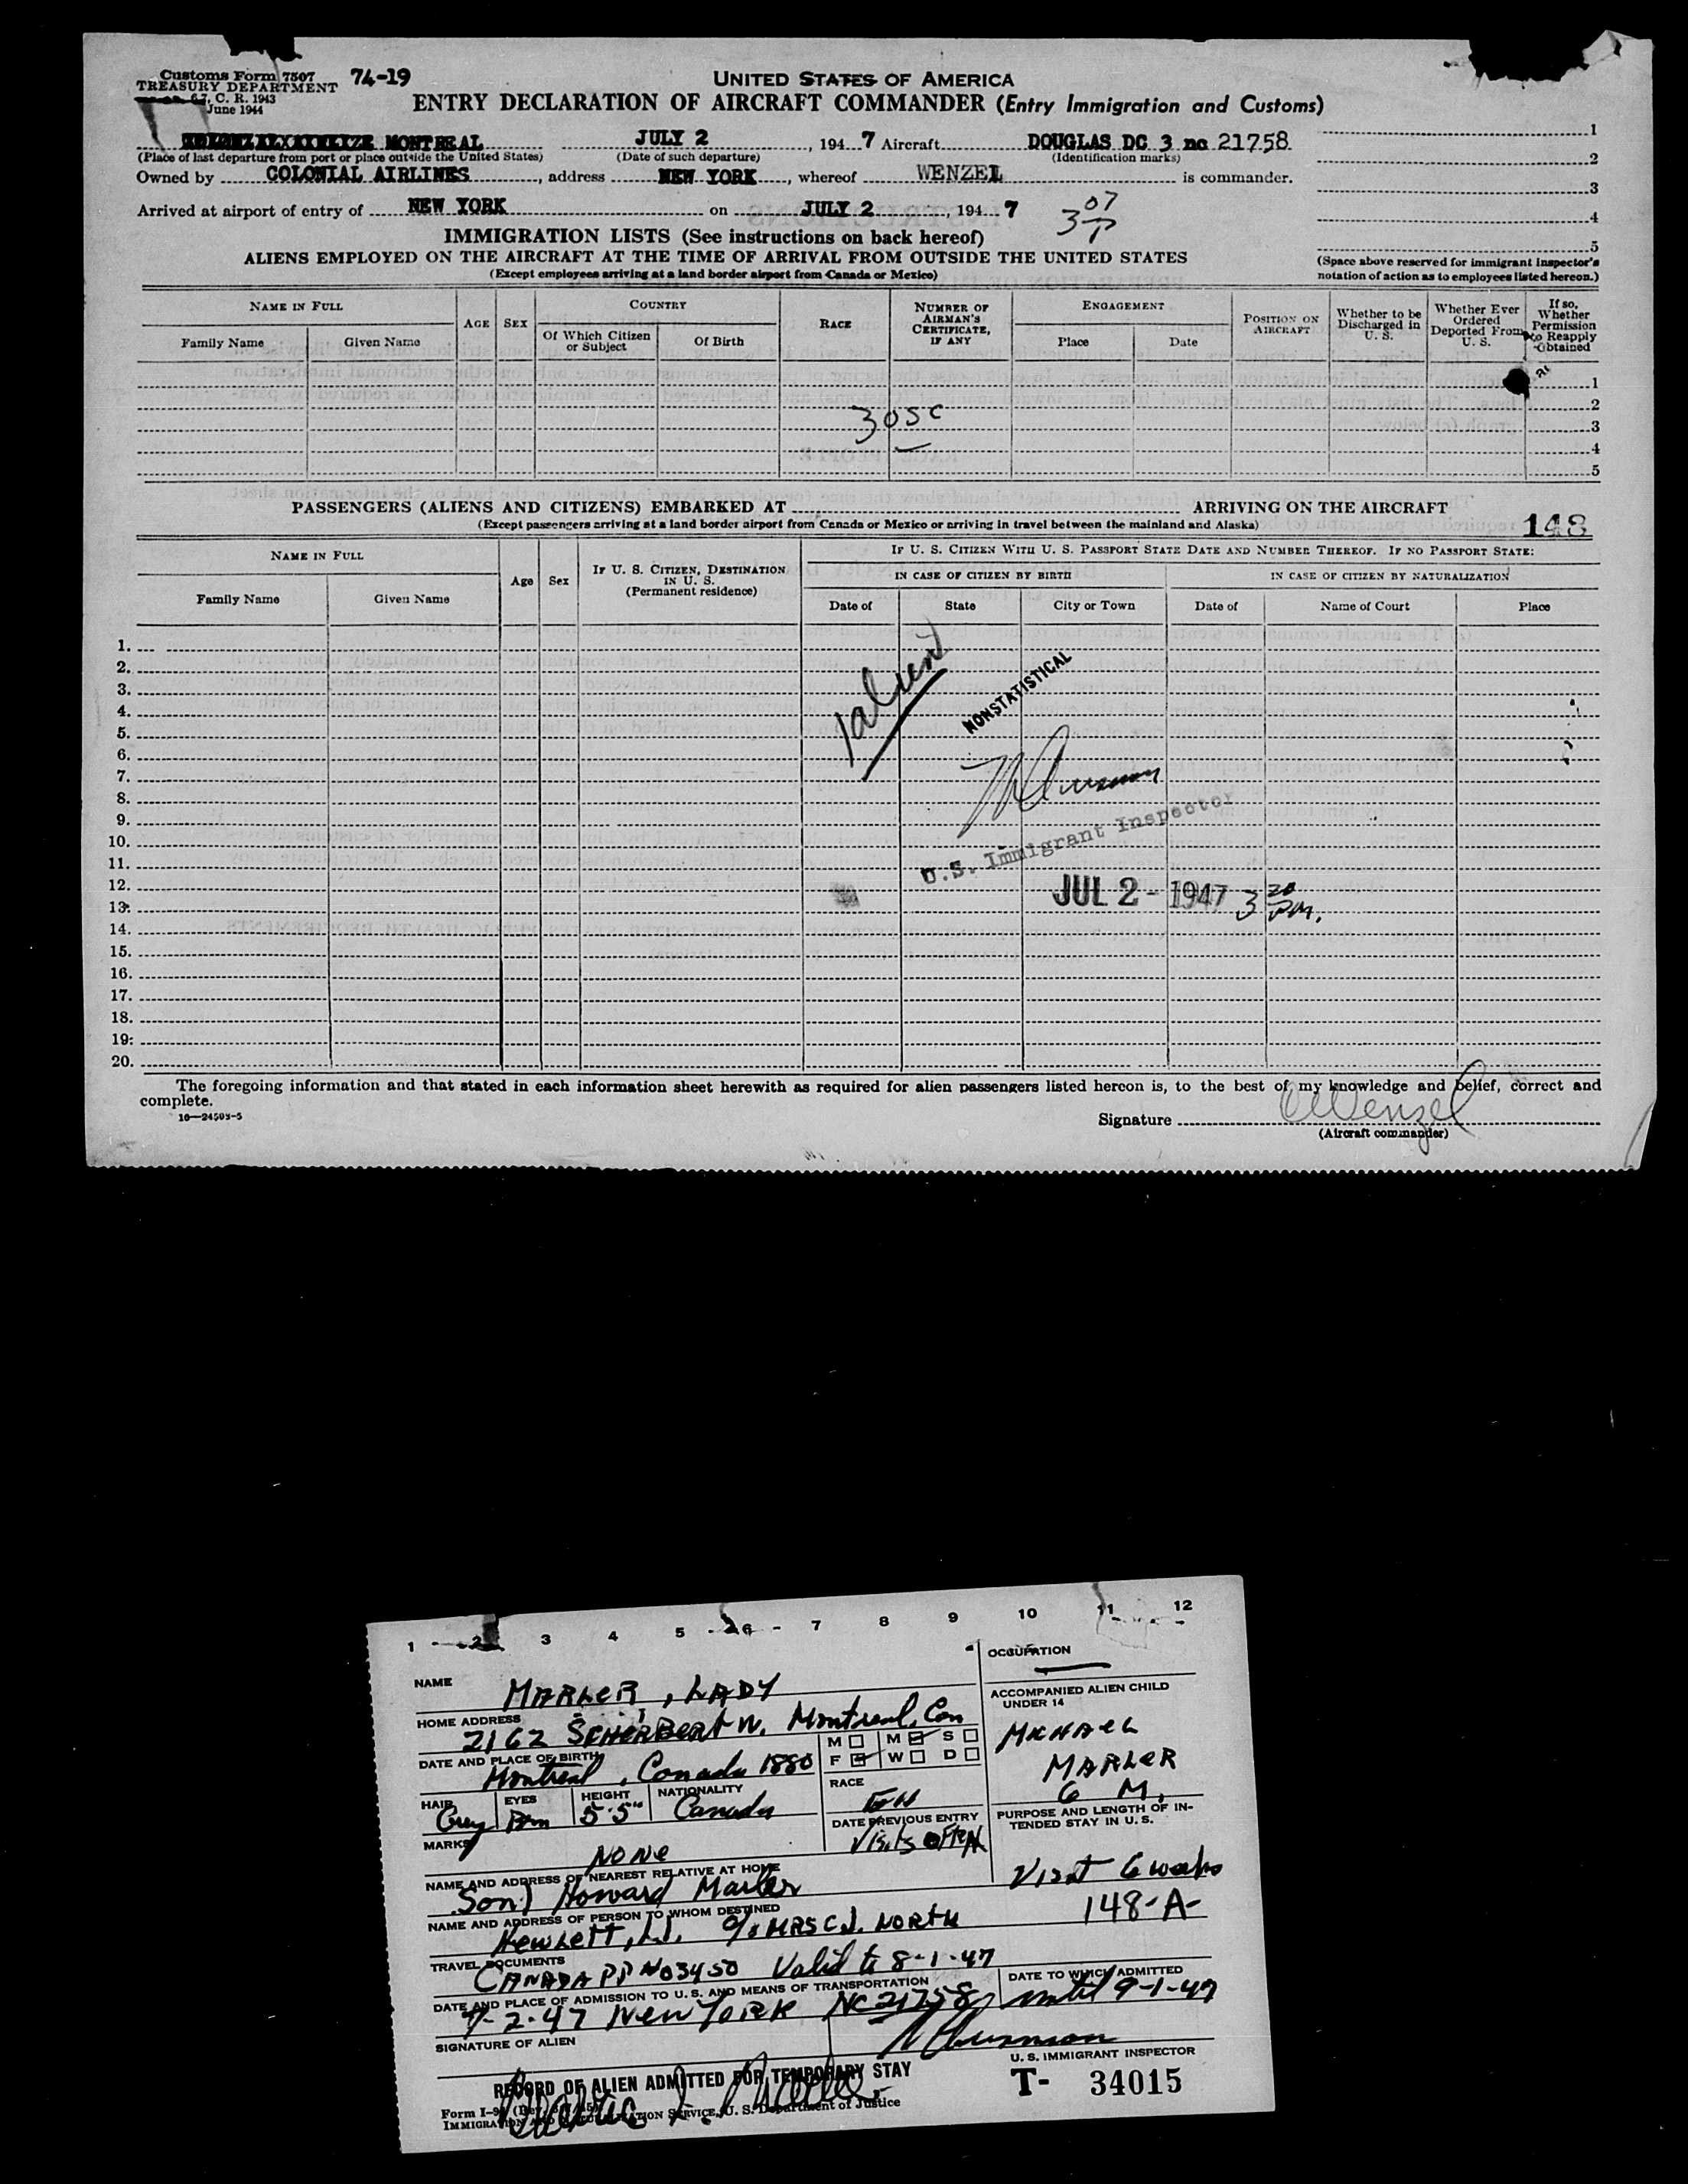 Customs Form 7507 74-19
TREASURY DEPARTMENT
6.7, C. R. 1943
June 1944
UNITED STATES OF AMERICA
ENTRY DECLARATION OF AIRCRAFT COMMANDER (Entry Immigration and Customs)
MONTREAL JULY 2, 1947 Aircraft DOUGLAS DC 3 nc 21758
(Place of last departure from port or place outside the United States) (Date of such departure) (Identification marks)
Owned by COLONIAL AIRLINES, address NEW YORK, whereof WENZEL is commander.
Arrived at airport of entry of NEW YORK on JULY 2, 1947 3 07 P
1
2
3
4
5
(Space above reserved for immigrant inspector's
notation of action as to employees listed hereon.)
IMMIGRATION LISTS (See instructions on back hereof)
ALIENS EMPLOYED ON THE AIRCRAFT AT THE TIME OF ARRIVAL FROM OUTSIDE THE UNITED STATES
(Except employees arriving at a land border airport from Canada or Mexico)
NAME IN FULL
Family Name Given Name
AGE SEX
COUNTRY
Of Which Citizen or Subject Of Birth
RACE
NUMBER OF AIRMAN'S CERTIFICATE, IF ANY
ENGAGEMENT
Place Date
POSITION ON AIRCRAFT
Whether to be Discharged in U. S.
Whether Ever Ordered Deported From U. S.
If so, Whether Permission to Reapply Obtained
1
2
3
4
5
305c
PASSENGERS (ALIENS AND CITIZENS) EMBARKED AT ARRIVING ON THE AIRCRAFT
(Except passengers arriving at a land border airport from Canada or Mexico or arriving in travel between the mainland and Alaska)
148
NAME IN FULL
Family Name Given Name
Age Sex
IF U. S. CITIZEN, DESTINATION IN U. S.
(Permanent residence)
IF U. S. CITIZEN WITH U. S. PASSPORT STATE DATE AND NUMBER THEREOF. IF NO PASSPORT STATE:
IN CASE OF CITIZEN BY BIRTH IN CASE OF CITIZEN BY NATURALIZATION
Date of State City or Town Date of Name of Court Place
1.
2.
3.
4.
5.
6.
7.
8.
9.
10.
11.
12.
13.
14.
15.
16.
17.
18.
19.
20.
1 alien
NONSTATISTICAL
U.S. Immigrant Inspector
JUL 2 - 1947 3 20 PM.
The foregoing information and that stated in each information sheet herewith as required for alien passengers listed hereon is, to the best of my knowledge and belief, correct and
complete.
16—24503-5
Signature Wenzel
(Aircraft commander)
1 2 3 4 5 6 7 8 9 10 11 12
NAME MARLER, LADY
HOME ADDRESS 2162 W. Montreal, Can
DATE AND PLACE OF BIRTH Montreal, Canada 1880
M F M S W D
HAIR Grey EYES Brn HEIGHT 5'5" NATIONALITY Canada
RACE
MARKS NONE
DATE PREVIOUS ENTRY Visits OFTEN
NAME AND ADDRESS OF NEAREST RELATIVE AT HOME
Son) Howard Marler
NAME AND ADDRESS OF PERSON TO WHOM DESTINED
Hewlett, L.I. c/o MRS C.J. NORTH
TRAVEL DOCUMENTS
CANADA PP NO 3450 Valid to 8-1-47
DATE AND PLACE OF ADMISSION TO U. S. AND MEANS OF TRANSPORTATION
7-2-47 New York NC 21758
DATE TO WHICH ADMITTED
until 9-1-47
SIGNATURE OF ALIEN
OCCUPATION
ACCOMPANIED ALIEN CHILD UNDER 14
MICHAEL
MARLER
6 M.
PURPOSE AND LENGTH OF INTENDED STAY IN U. S.
Visit 6 weeks
148-A-
U. S. IMMIGRANT INSPECTOR
RECORD OF ALIEN ADMITTED FOR TEMPORARY STAY
T- 34015
Form I-94
IMMIGRATION AND NATURALIZATION SERVICE, U. S. Department of Justice